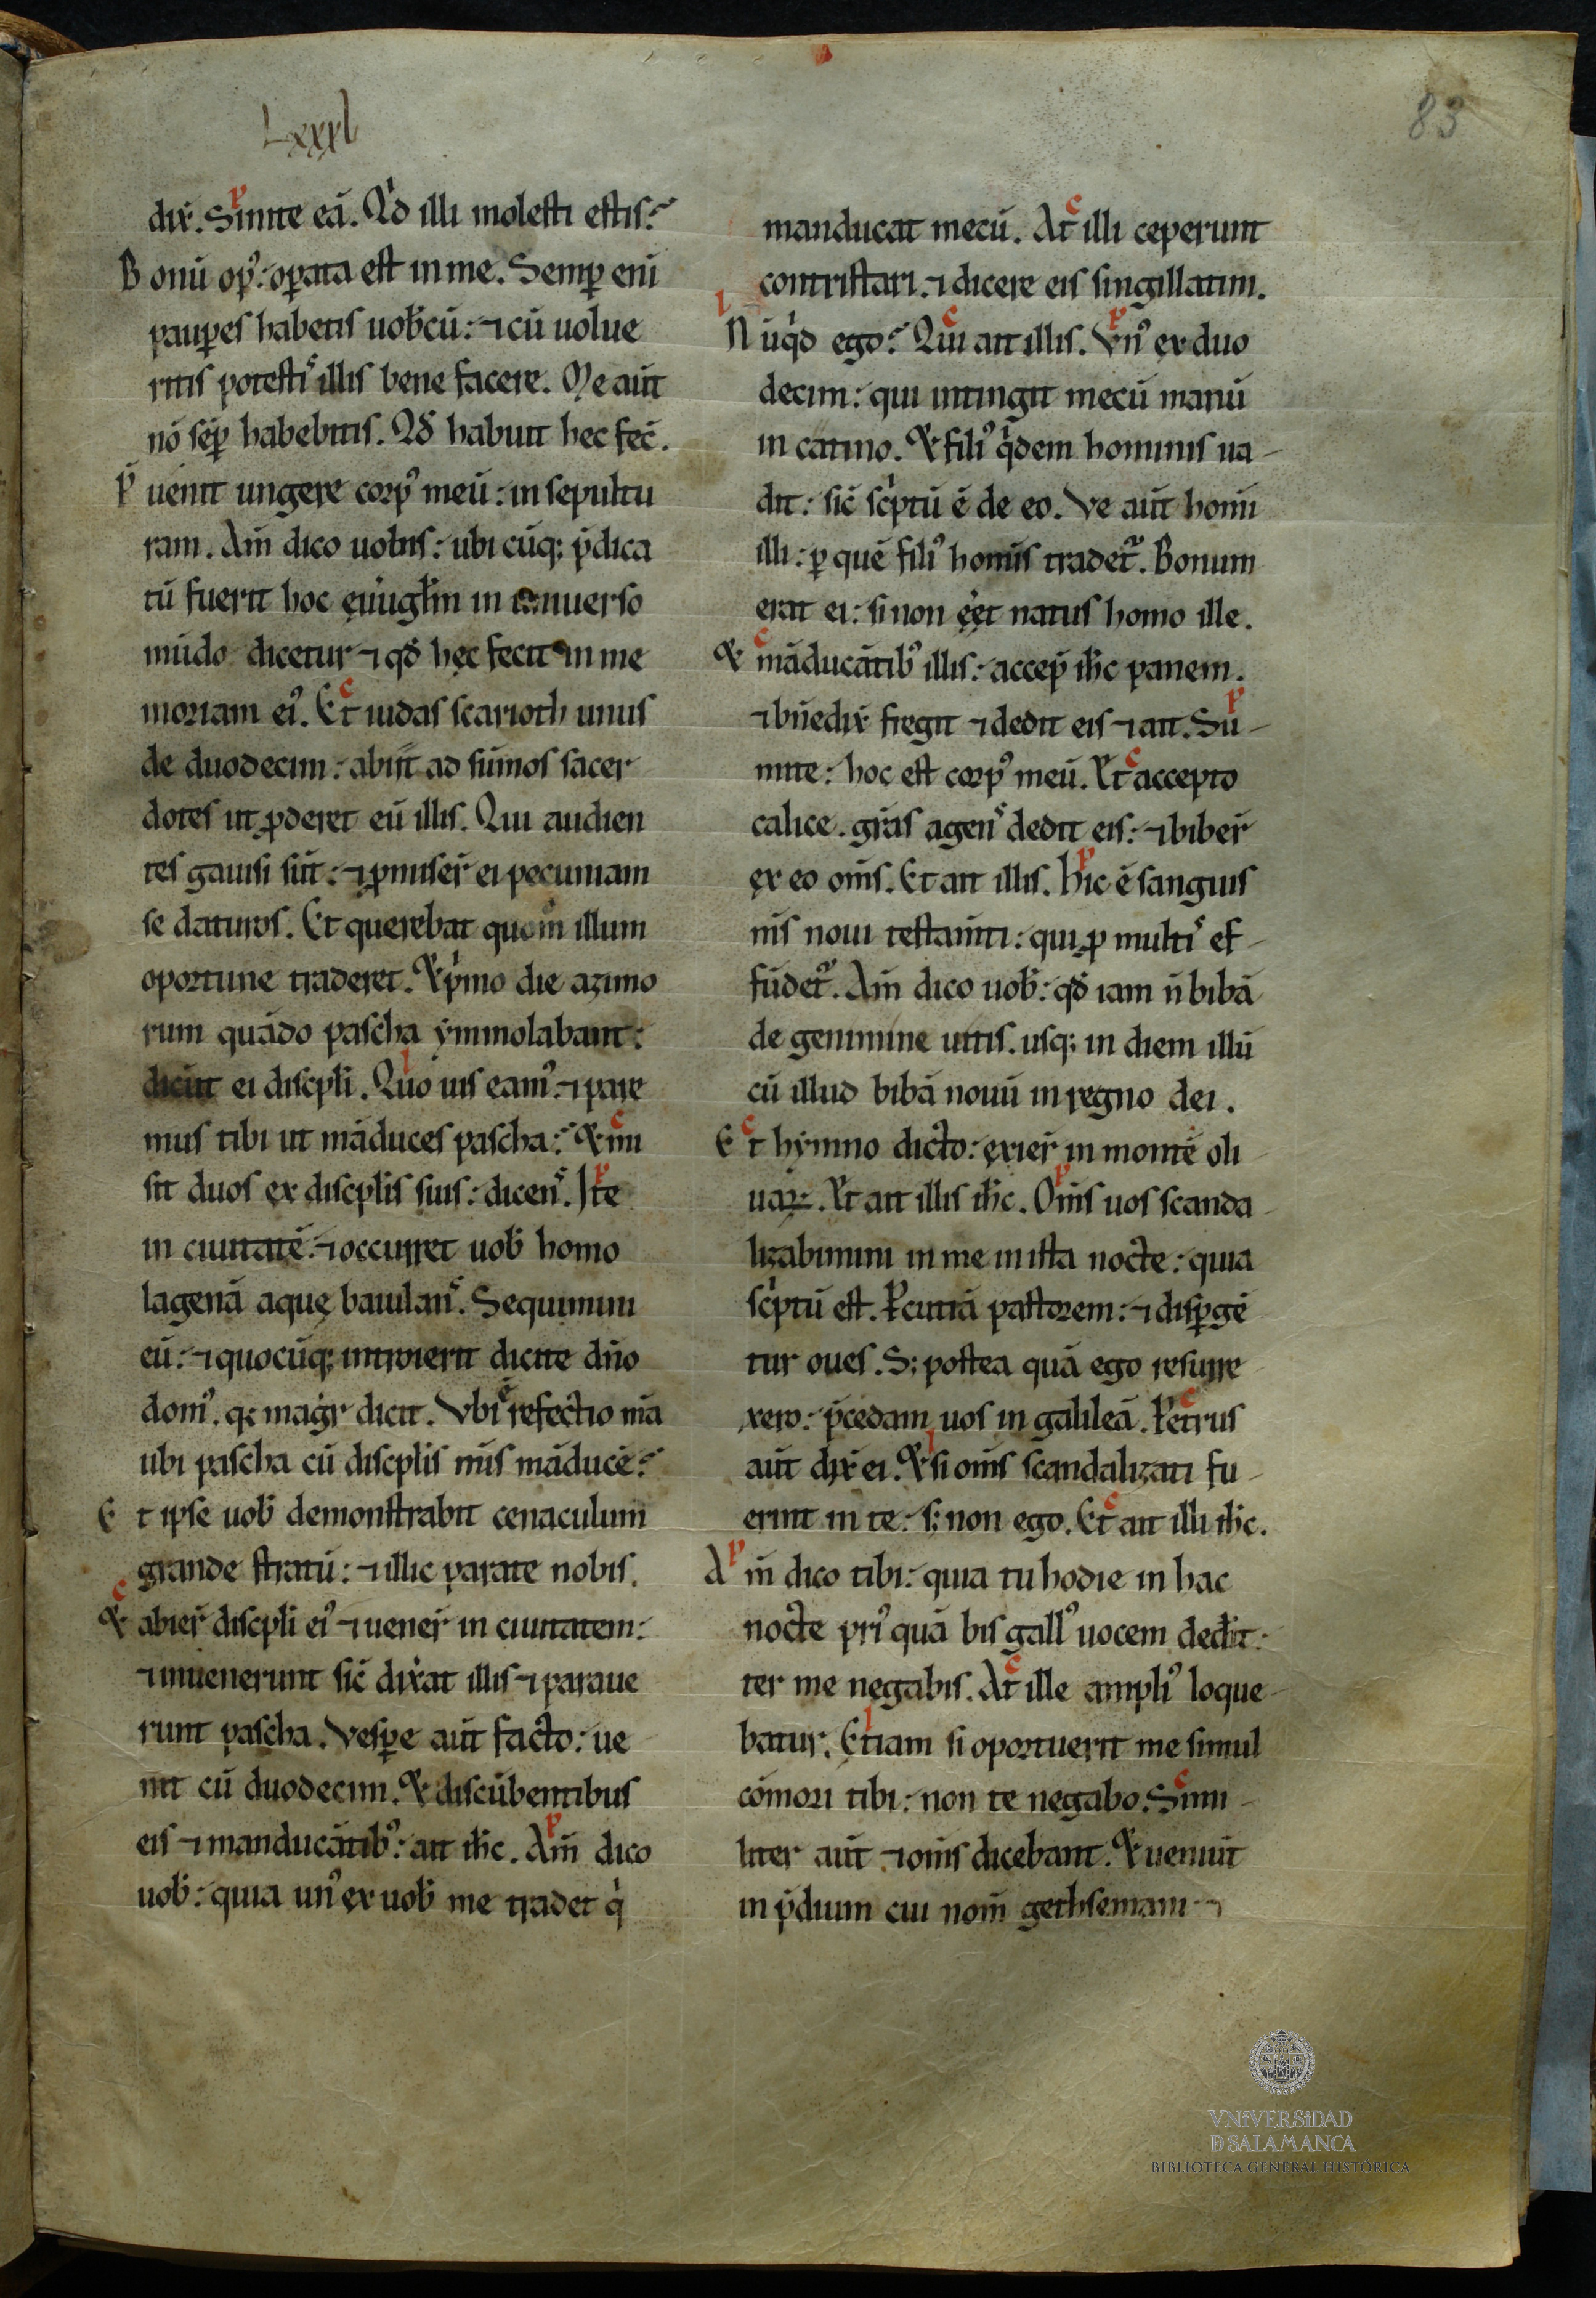 Lxxxl
83
dix̄. Sinite eā. Qͥd illi molesti estis?
Bonū opꝰ: oꝑata est in me. Semꝑ eni
pauꝑes habetis uob̄cū: ⁊ cū uolue
ritis potestiˢ illis bene facere. Me aūt
nō sēꝑ habebitis. Qđ habuit hec fec̄.
P̄uenit ungere corpꝰ meū: in sepultu
ram. Am̄ dico uobis: ubi cūq; p̄dica
tū fuerit hoc eu̇ugłm in uniuerso
mūdo dicetur ⁊ qđ hęc fecit in me
moriam eiꝰ. Et iudas scarioth unus
de duodecim: abiit ad sūmos sacer
dotes ut ꝓderet eū illis. Qui audien
tes gauisi sūt: ⁊ ꝓmiser̄ ei pecuniam
se daturos. Et querebat quom̊ illum
oportune traderet. & pͥmo die azimo
rum quādo pascha ymmolabant:
dicūt ei discpli. Quo uis eamꝰ ⁊ pare
mus tibi ut māduces pascha? & mi
sit duos ex discplis suis: dicenˢ. Ite
in ciuitatē: ⁊ occurret uob̄ homo
lagenā aquę baiulanˢ. Sequimini
eū: ⁊ quocūq; introierit dicite dn̄o
domꝰ. q; magr̄ dicit. Vbi ē refectio m̄a
ubi pascha cū discplis m̄is māducē?
Et ipse uob̄ demonstrabit cenaculum
grande stratū: ⁊ illic parate nobis.
& abier̄ discpli eiꝰ ⁊ uener̄ in ciuitatem:
⁊ inuenerunt sic̄ dix̄at illis ⁊ paraue
runt pascha. Vesꝑe aūt facto: ue
nit cū duodecim. & discūbentibus
eis ⁊ manducātibꝰ: ait ih̄c. Am̄ dico
uob̄: quia unꝰ ex uob̄ me tradet qͥ
manducat mecū. At illi ceperunt
contristari. ⁊ dicere eis singillatim.
Nūqͥd ego? Qui ait illis. Vnꝰ ex duo
decim: qui intingit mecū manū
in catino. & filiꝰ qͥdem hominis ua-
dit: sic̄ scͥptū ē de eo. Ve aūt homī
illi: ꝑ quē filiꝰ homīs tradet᷑. Bonum
erat ei: si non eēt natus homo ille.
& māducātibꝰ illis: accep̄ ih̄c panem.
⁊ bn̄edix̄ fregit ⁊ dedit eis ⁊ ait. Su-
mite: hoc est corpꝰ meū. Et accepto
calice. grās agenˢ dedit eis: ⁊ biber̄
ex eo om̄s. Et ait illis. Hic ē sanguis
m̄s noui testam̄ti: qui ꝓ multiˢ ef-
fūdet᷑. Am̄ dico uob̄: qđ iam n̄ bibā
de genimine uitis. usq; in diem illū
cū illud bibā nouū in regno dei.
Et hymno dicto: exier̄ in montē oli
uaꝝ. Et ait illis ih̄c. Om̄s uos scanda
lizabimini in me in ista nocte: quia
scͥptū est. Pcutiā pastorem: ⁊ disꝑgē
tur oues. S; postea quā ego resurre
xero: p̄cedam uos in galileā. Petrus
aūt dix̄ ei. & si om̄s scandalizati fu-
erint in te: s; non ego. Et ait illi ih̄c.
Am̄ dico tibi: quia tu hodie in hac
nocte priꝰ quā bis gallꝰ uocem dedīt:
ter me negabis. At ille ampliꝰ loque-
batur. Etiam si oportuerit me simul
cōmori tibi: non te negabo. Simi-
liter aūt ⁊ om̄s dicebant. & ueniūt
in p̄dium cui nom̄ gethsemani ⁊
VNIVERSIDAD
D SALAMANCA
BIBLIOTECA GENERAL HISTÓRICA